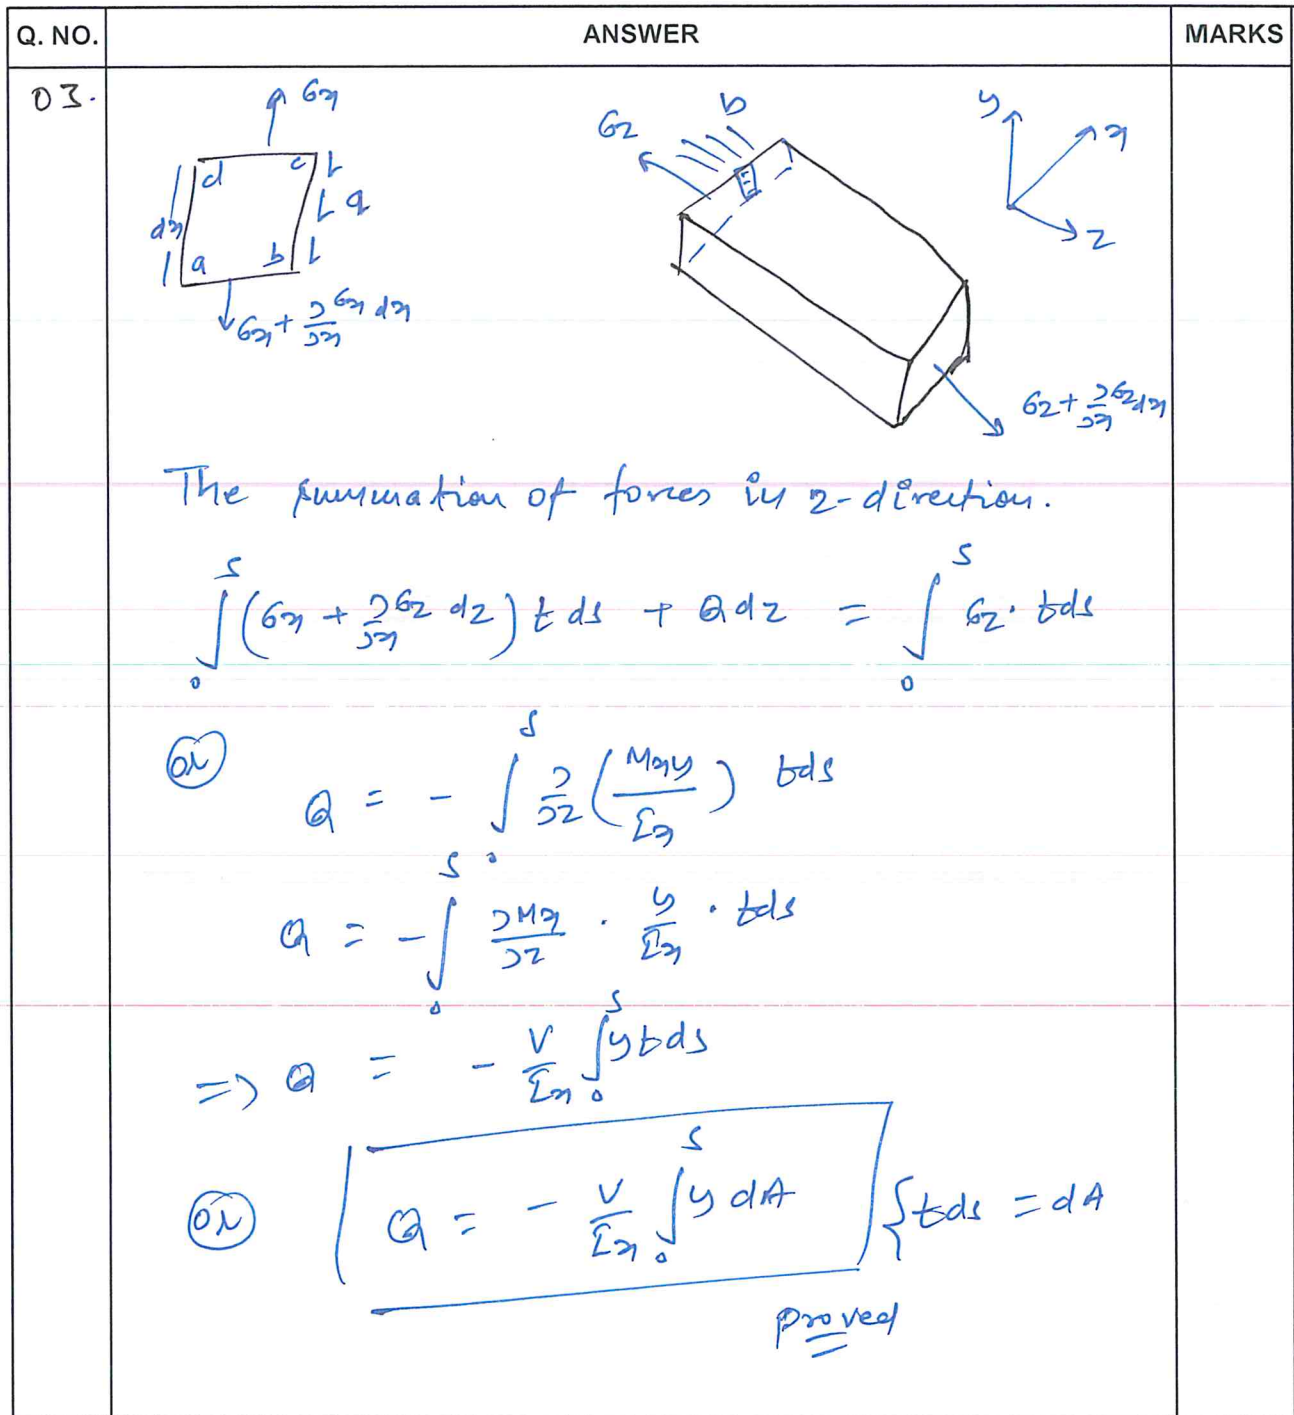 Q. NO. ANSWER MARKS
03.
σx
d c
dx q
a b
σx + ∂σx/∂x dx
σz b
y x z
σz + ∂σz/∂x dx
The summation of forces in z-direction.
∫₀ˢ (σx + ∂σz/∂x dz) t ds + Q dz = ∫₀ˢ σz · tds
(or)
Q = - ∫₀ˢ ∂/∂z (Mxy/Ix) tds
Q = - ∫₀ˢ ∂Mx/∂z · y/Ix · tds
=> Q = - V/Ix ∫₀ˢ ytds
(or) Q = - V/Ix ∫₀ˢ y dA {tds = dA
Proved